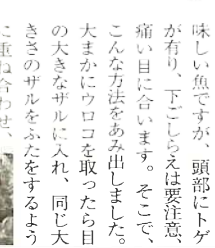 味しい魚ですが、頭部にトゲ
が有り、下ごしらえは要注意
痛い目に合います。そこで、
こんな方法をあみ出しました。
大まかにウロコを取ったら目
の大きなザルに入れ、同じ大
きさのザルをふたをするよう
に重ね合わせ、